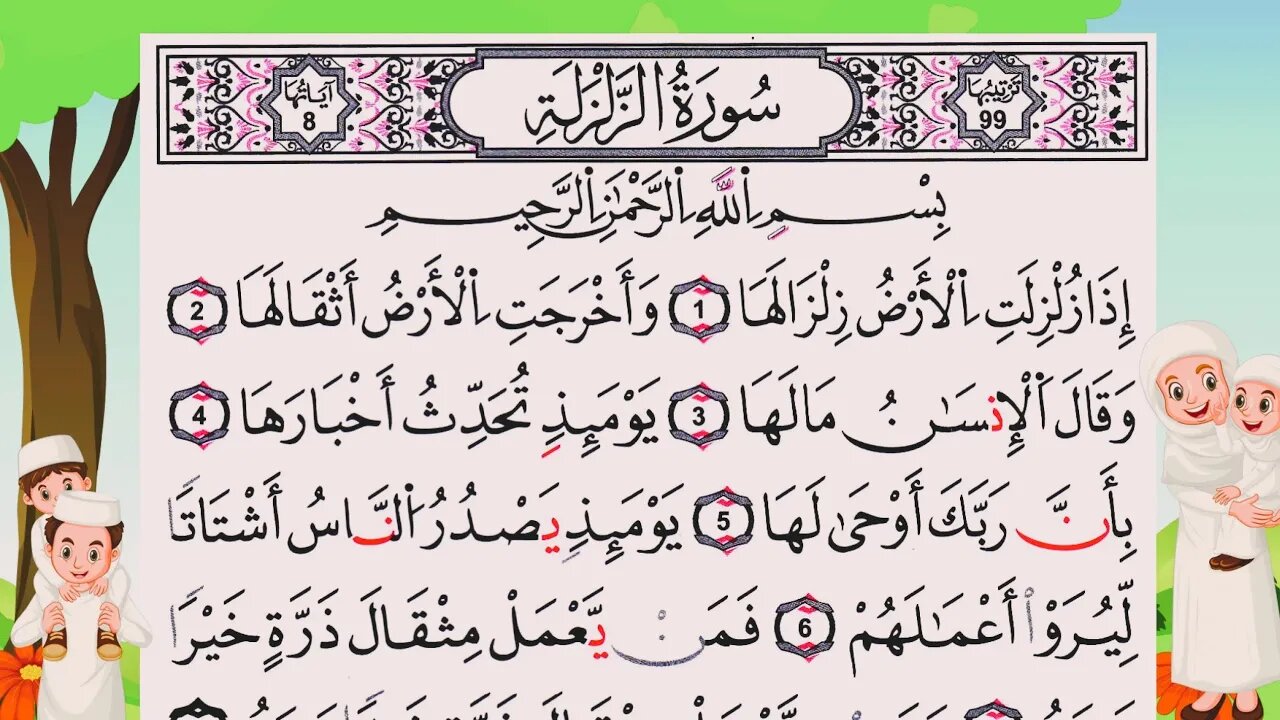 ترتيبها 99
سُورَةُ الزَّلْزَلَةِ
آيَاتُهَا 8
بِسْمِ اللَّهِ الرَّحْمَٰنِ الرَّحِيمِ
إِذَا زُلْزِلَتِ الْأَرْضُ زِلْزَالَهَا 1 وَأَخْرَجَتِ الْأَرْضُ أَثْقَالَهَا 2
وَقَالَ الْإِنسَٰنُ مَا لَهَا 3 يَوْمَئِذٍ تُحَدِّثُ أَخْبَارَهَا 4
بِأَنَّ رَبَّكَ أَوْحَىٰ لَهَا 5 يَوْمَئِذٍ يَصْدُرُ النَّاسُ أَشْتَاتًا
لِّيُرَوْا أَعْمَٰلَهُمْ 6 فَمَن يَّعْمَلْ مِثْقَالَ ذَرَّةٍ خَيْرًا